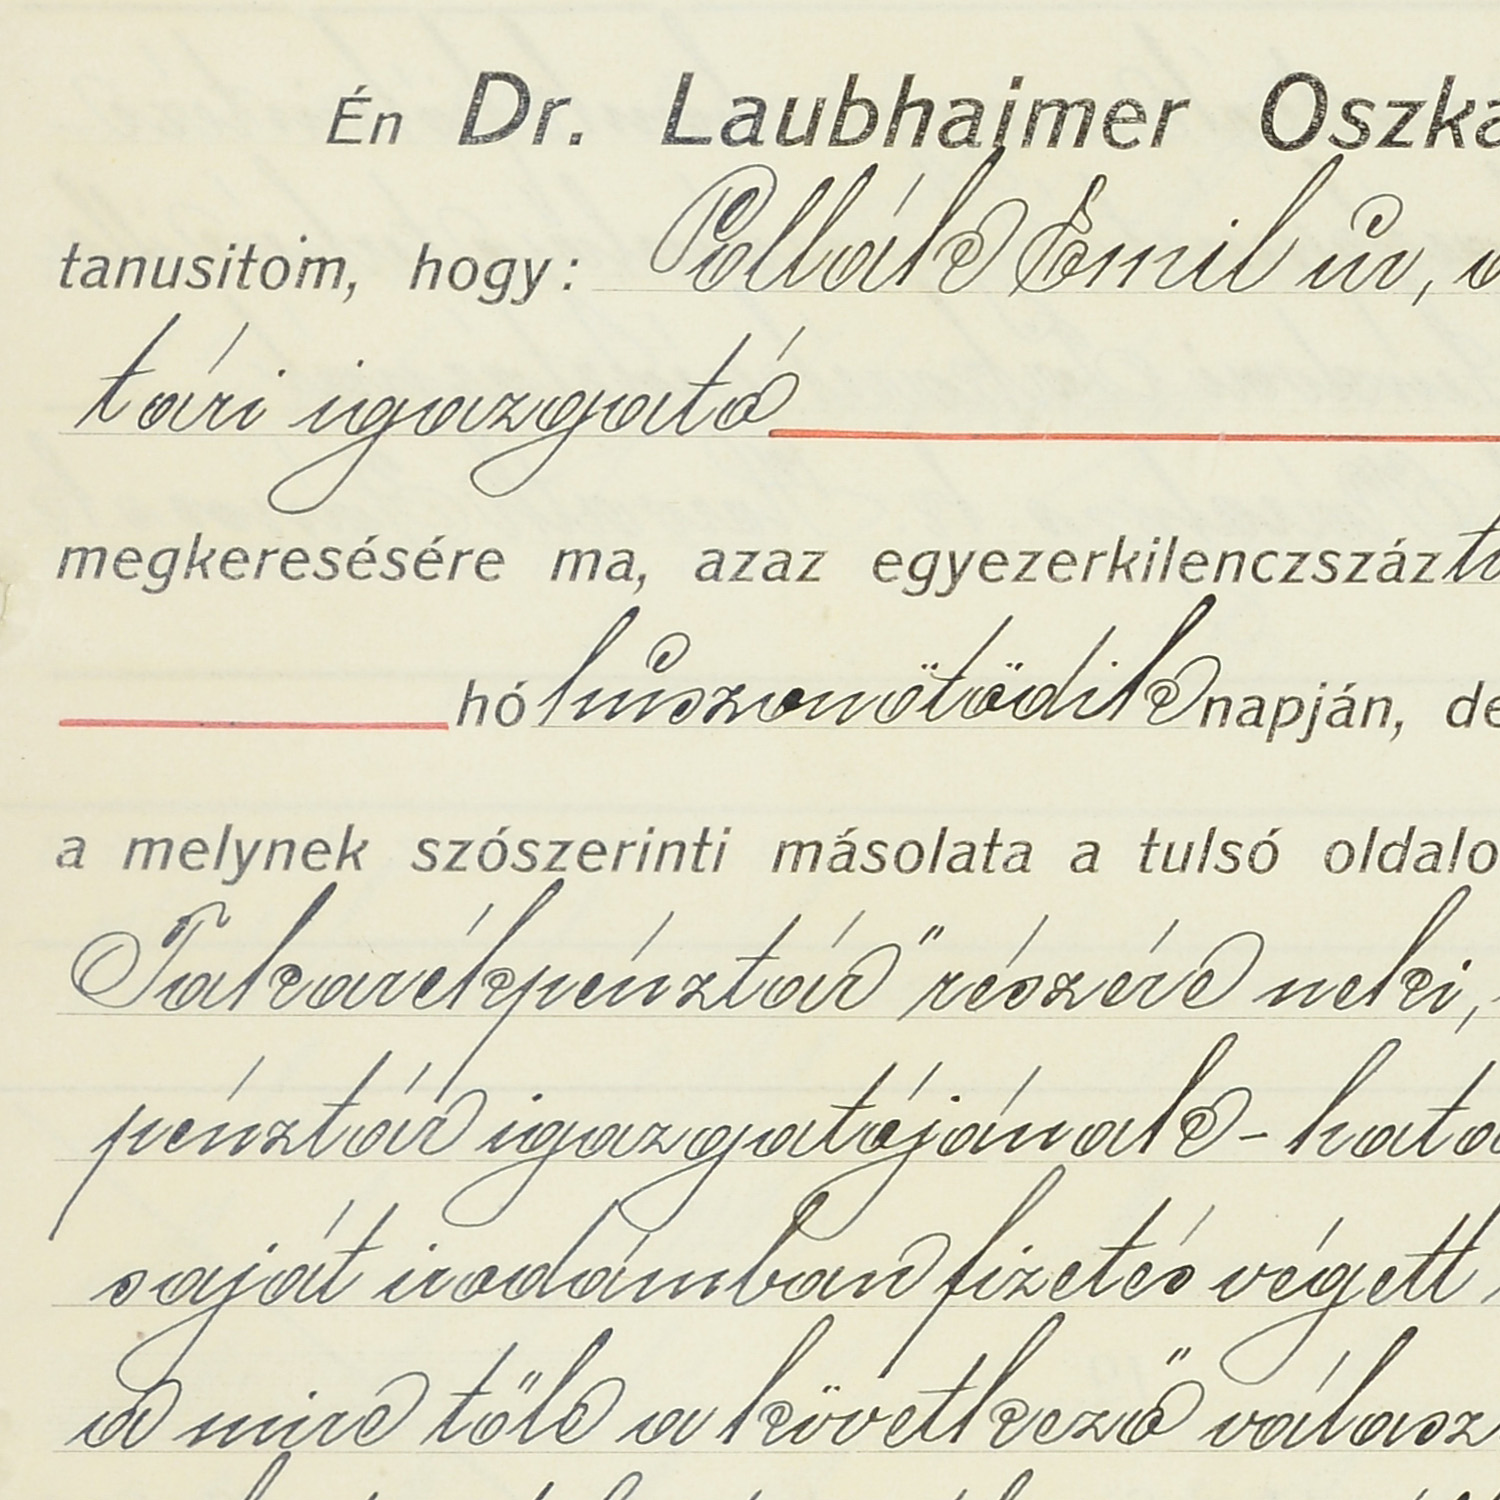 Én Dr. Laubhaimer Oszká
tanusitom, hogy: Pollák Emil úr,
tári igazgató
megkeresésére ma, azaz egyezerkilenczszáz
hó huszonötödik napján, de
a melynek szószerinti másolata a tulsó oldalo
Takarékpénztár" részére neki,
pénztár igazgatójának - hata
saját irodámban fizetés végett
a mire tőle a következő válasz